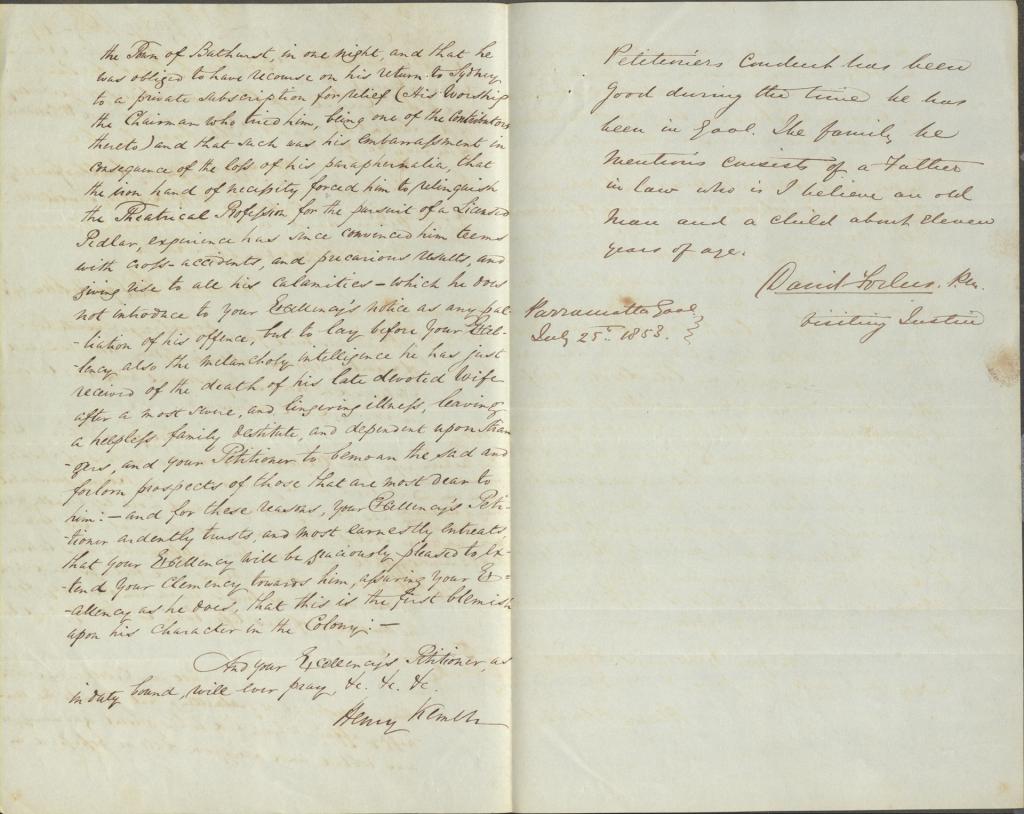 the Town of Bathurst, in one night, and that he
was obliged to have recourse on his return to Sydney
to a private subscription for relief (His Worship
the Chairman who tried him, being one of the Contributors
thereto) and that such was his embarrassment in
consequence of the loss of his paraphernalia, that
the iron hand of necessity forced him to relinquish
the Theatrical Profession for the pursuit of a Licensed
Pedlar, experience has since convinced him teems
with cross-accidents, and precarious results, and
giving rise to all his calamities - which he does
not introduce to your Excellency's notice as any pal-
-liation of his offence, but to lay before Your Excel-
-lency also the melancholy intelligence he has just
received of the death of his late devoted Wife
after a most severe, and lingering illness, leaving
a helpless family destitute, and dependent upon Stran-
-gers, and your Petitioner to bemoan the sad and
forlorn prospects of those that are most dear to
him: - and for these reasons, your Excellency's Peti-
-tioner ardently trusts, and most earnestly entreats,
that your Excellency will be graciously pleased to ex-
-tend your Clemency towards him, assuring your Ex-
-cellency as he does, that this is the first blemish
upon his character in the Colony: -
And your Excellency's Petitioner, as
in duty bound, will ever pray, &c. &c. &c.
Henry
Petitioners Conduct has been
Good during the time he has
been in Gaol. The family he
mentions consists of a Father
in law who is I believe an old
Man and a child about eleven
years of age.
David Forbes.
Visiting Justice
Parramatta Gaol
July 25th 1853.